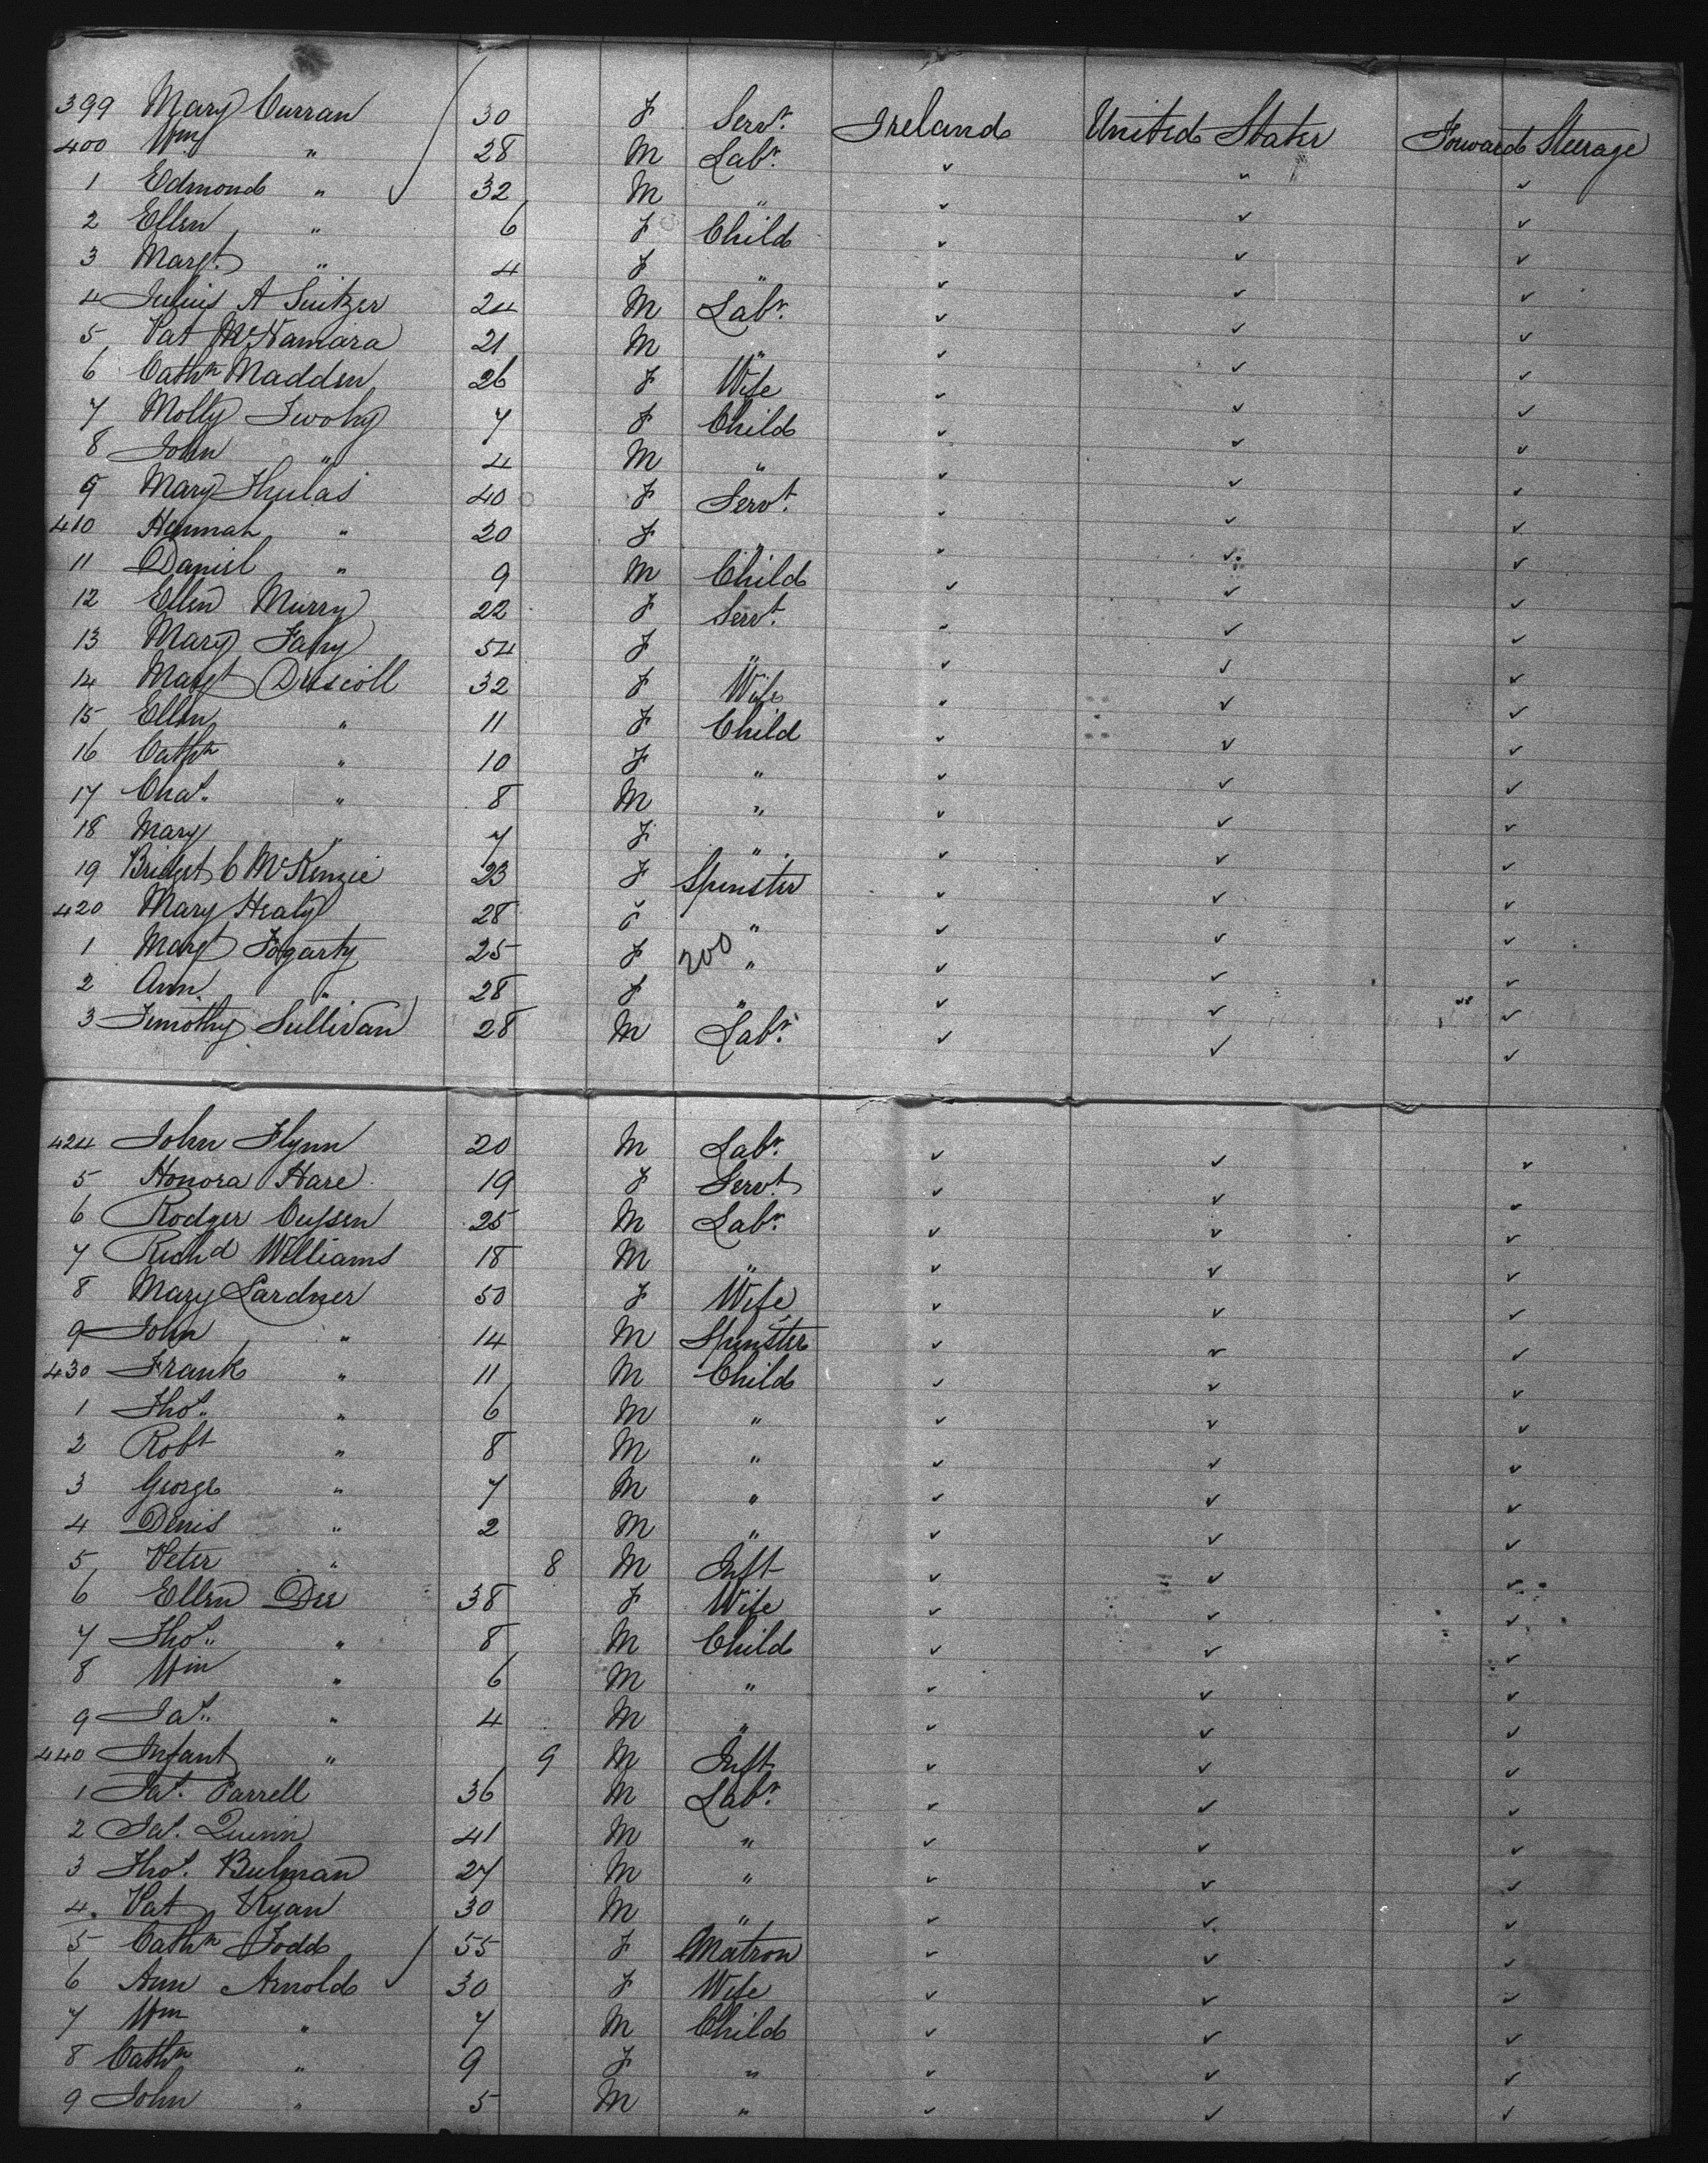 399 Mary Curran 30 F Servt. Ireland United States Forward Steerage
400 Wm " 28 M Labr. ✓ ✓ ✓
1 Edmond " 32 M " ✓ ✓ ✓
2 Ellen " 6 F Child ✓ ✓ ✓
3 Margt. " 4 F " ✓ ✓ ✓
4 Julius A Suitzer 24 M Labr. ✓ ✓ ✓
5 Pat McNamara 21 M " ✓ ✓ ✓
6 Cathn Madden 26 F Wife ✓ ✓ ✓
7 Molly Twohy 7 F Child ✓ ✓ ✓
8 John " 4 M " ✓ ✓ ✓
9 Mary 40 F Servt. ✓ ✓ ✓
410 Hannah " 20 F " ✓ ✓ ✓
11 Daniel " 9 M Child ✓ ✓ ✓
12 Ellen Murry 22 F Servt. ✓ ✓ ✓
13 Mary Fahy 54 F " ✓ ✓ ✓
14 Margt Driscoll 32 F Wife ✓ ✓ ✓
15 Ellen " 11 F Child ✓ ✓ ✓
16 Cathn " 10 F " ✓ ✓ ✓
17 Chas. " 8 M " ✓ ✓ ✓
18 Mary " 7 F " ✓ ✓ ✓
19 Bridget C McKenzie 23 F Spinster ✓ ✓ ✓
420 Mary Healy 28 " " ✓ ✓ ✓
1 Margt Fogarty 25 F 200 " ✓ ✓ ✓
2 Ann " 28 F " ✓ ✓ ✓
3 Timothy Sullivan 28 M Labr. ✓ ✓ ✓
424 John Flynn 20 M Labr. ✓ ✓ ✓
5 Honora Hare 19 F Servt. ✓ ✓ ✓
6 Rodger Cussen 25 M Labr. ✓ ✓ ✓
7 Richd Williams 18 M " ✓ ✓ ✓
8 Mary Lardner 50 F Wife ✓ ✓ ✓
9 John " 14 M Spinster ✓ ✓ ✓
430 Frank " 11 M Child ✓ ✓ ✓
1 Thos. " 6 M " ✓ ✓ ✓
2 Robt " 8 M " ✓ ✓ ✓
3 George " 7 M " ✓ ✓ ✓
4 Denis " 2 M " ✓ ✓ ✓
5 Peter " 8 M Inft ✓ ✓ ✓
6 Ellen Dee 38 F Wife ✓ ✓ ✓
7 Thos. " 8 M Child ✓ ✓ ✓
8 Wm " 6 M " ✓ ✓ ✓
9 Jas. " 4 M " ✓ ✓ ✓
440 Infant " 9 M Inft ✓ ✓ ✓
1 Jas. Farrell 36 M Labr. ✓ ✓ ✓
2 Jas. Quinn 41 M " ✓ ✓ ✓
3 Thos. Bulman 27 M " ✓ ✓ ✓
4. Pat Ryan 30 M " ✓ ✓ ✓
5 Cathn Todd 55 F Matron ✓ ✓ ✓
6 Ann Arnold 30 F Wife ✓ ✓ ✓
7 Wm " 7 M Child ✓ ✓ ✓
8 Cathn " 9 F " ✓ ✓ ✓
9 John " 5 M " ✓ ✓ ✓